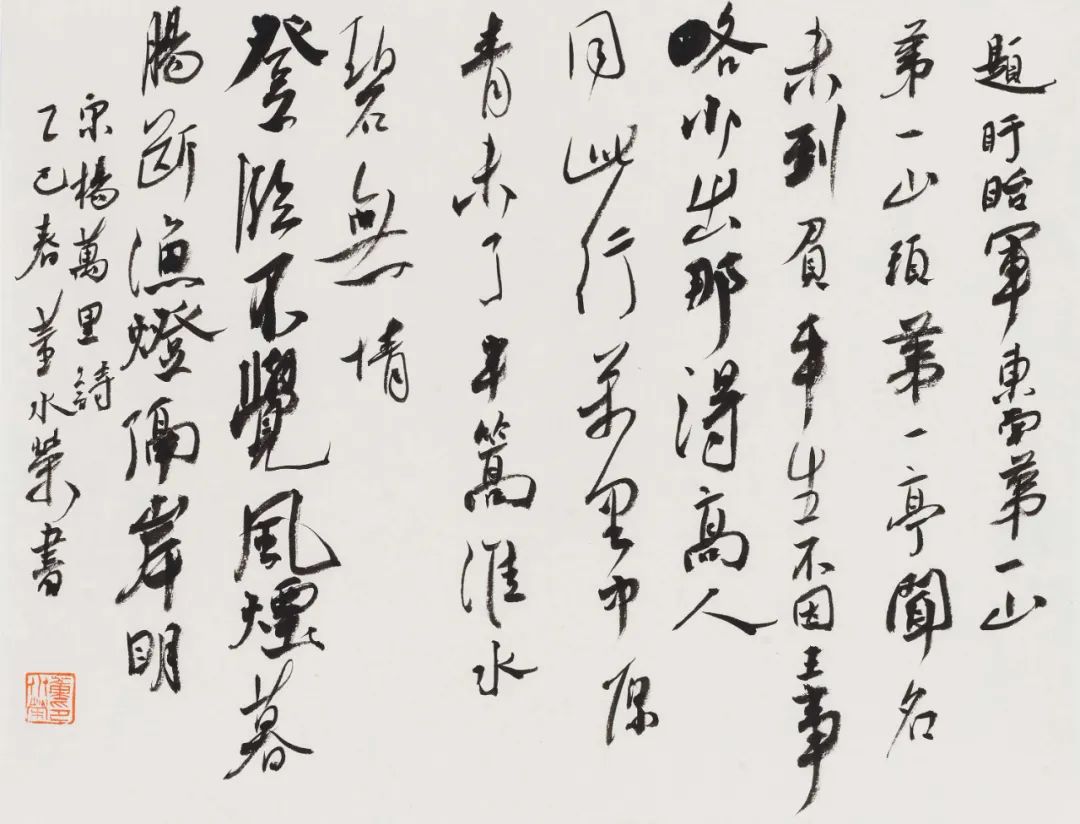 題盱眙軍東南第一山
第一山頭第一亭聞名
未到負平生不因王事
略小出那得高人
同此行萬里中原
青未了半篙淮水
碧無情
登臨不覺風煙暮
腸斷漁燈隔岸明
宋楊萬里詩
乙巳春董水榮書